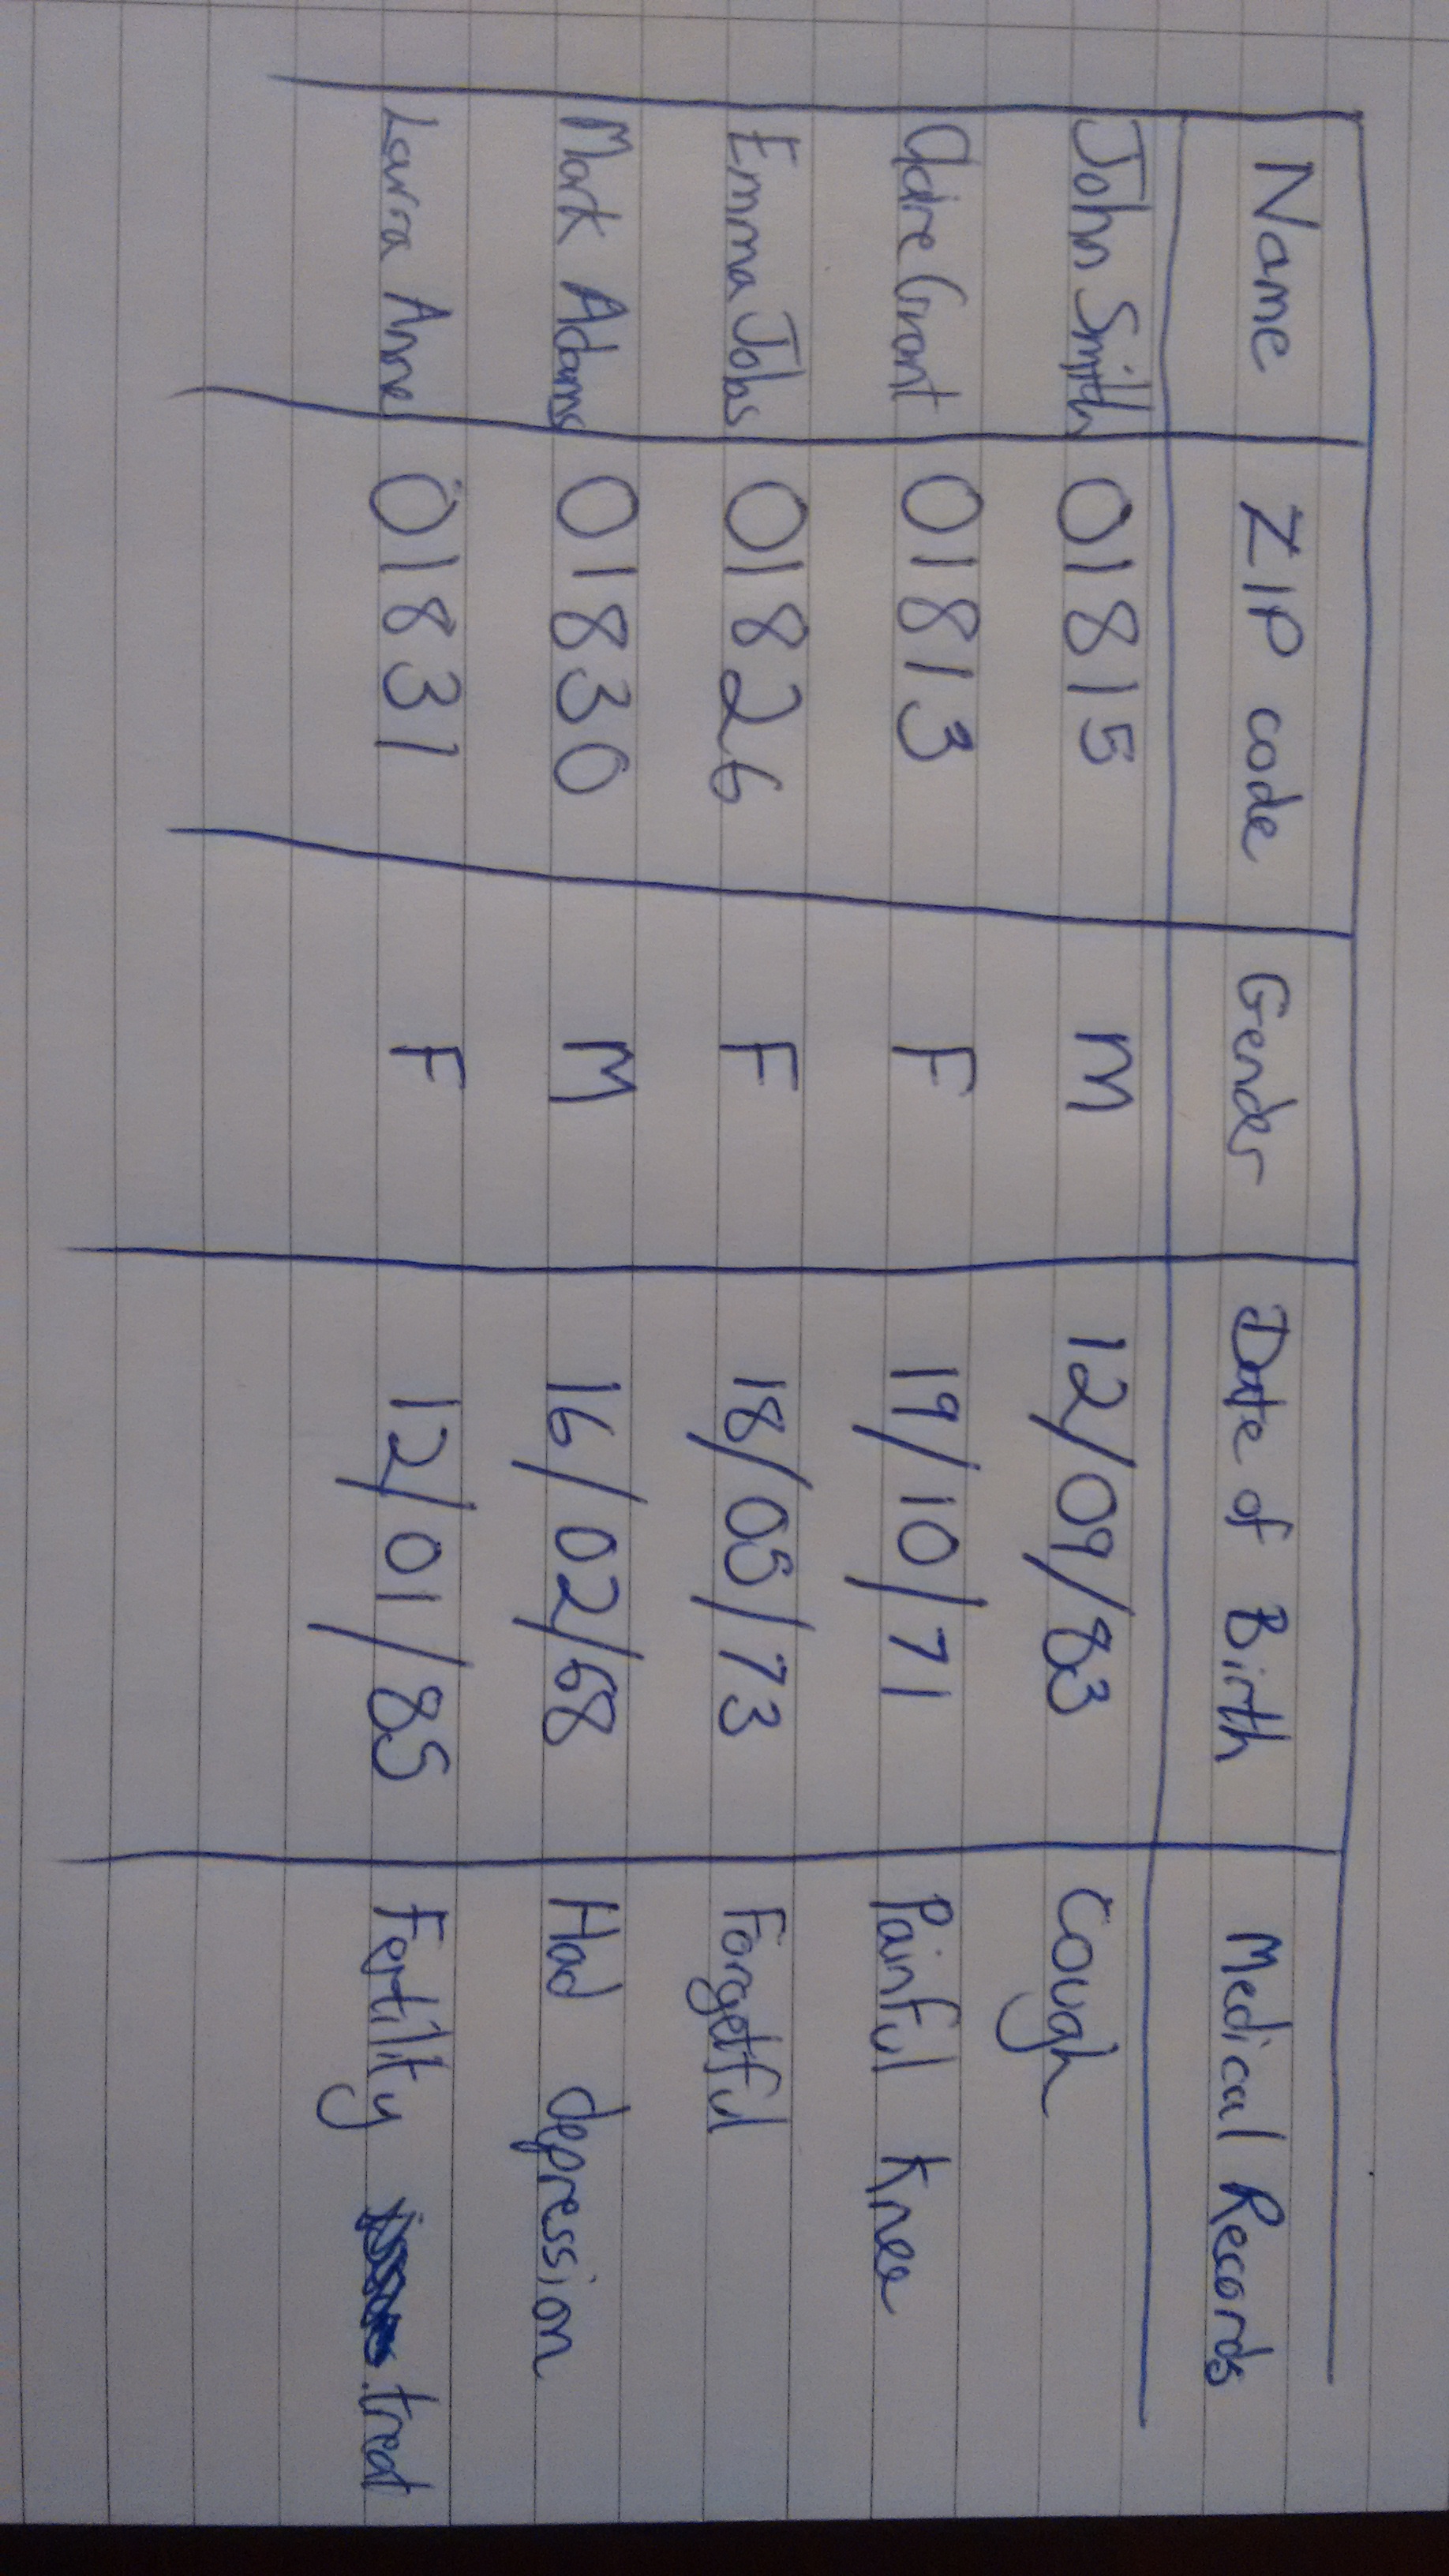 Name ZIP code Gender Date of Birth Medical Records
John Smith 01815 M 12/09/83 Cough
Claire Grant 01813 F 19/10/71 Painful Knee
Emma Jobs 01826 F 18/05/73 Forgetful
Mark Adams 01830 M 16/02/68 Had depression
Laura Anne 01831 F 12/01/85 Fertility treat